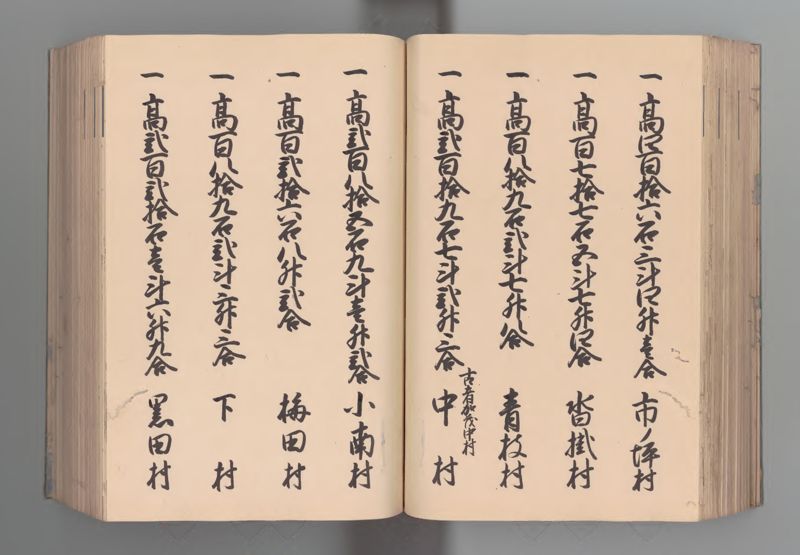 一 高四百拾六石三斗四升壱合 市ノ坪村
一 高百七拾七石五斗七升四合 沓掛村
一 高百八拾九石弐斗七升八合 青枝村
一 高弐百拾九石七斗弐升三合 中村
古者加茂中村
一 高弐百八拾五石九斗壱升弐合 小南村
一 高百弐拾六石八升弐合 梅田村
一 高百八拾九石弐斗三升三合 下村
一 高弐百弐拾石壱斗六升九合 黒田村